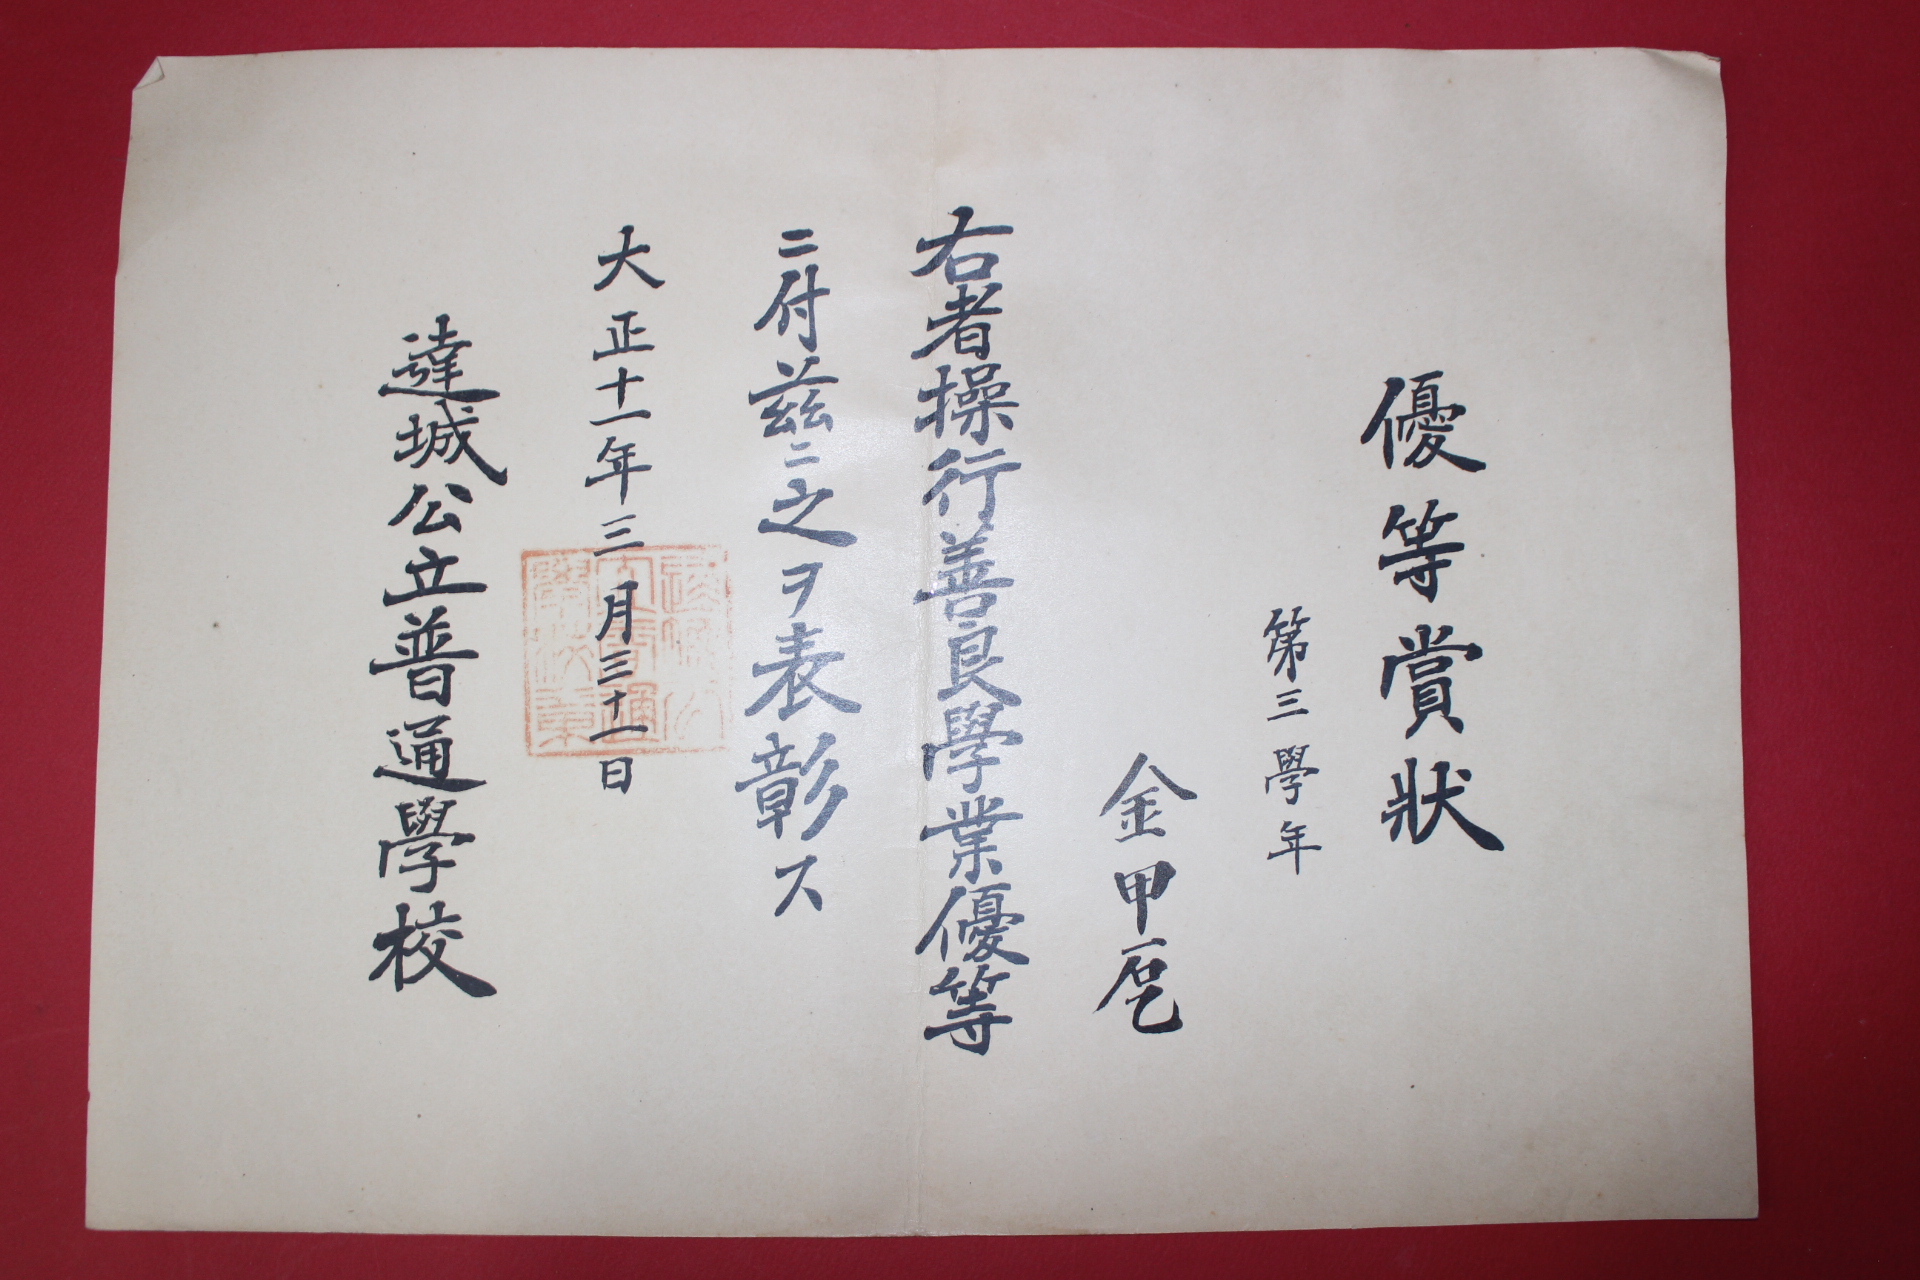 優等賞狀
第三學年
金甲乭
右者操行善良學業優等
ニ付茲ニ之ヲ表彰ス
大正十一年三月三十一日
達城公立普通學校
達城公
立普通
學校章